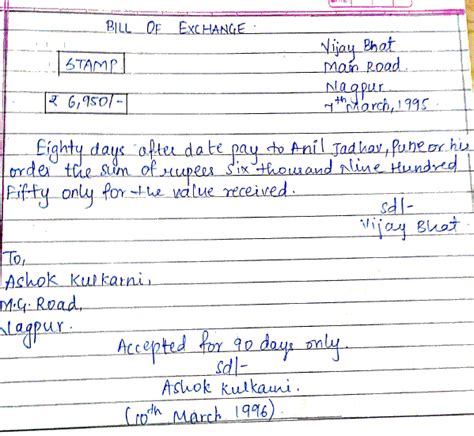 BILL OF EXCHANGE
STAMP
₹ 6,950/-
Vijay Bhat
Main Road
Nagpur
7th March, 1995
Eighty days after date pay to Anil Jadhav, Pune or his
order the sum of rupees six thousand Nine Hundred
Fifty only for the value received.
sd/-
Vijay Bhat
To,
Ashok Kulkarni,
M.G. Road,
Nagpur.
Accepted for 90 days only.
sd/-
Ashok Kulkarni.
(10th March 1996)